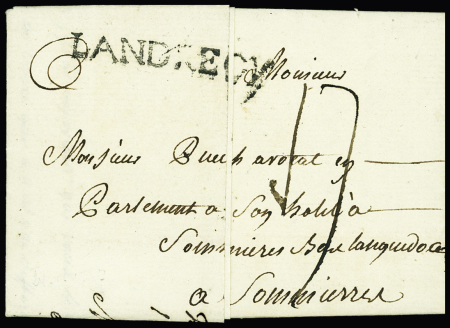 LANDRECY
Monsieur
17
Monsieur Puech avocat en
Parlement a Son hotel a
Sommieres Bas languedoc
a Sommierres